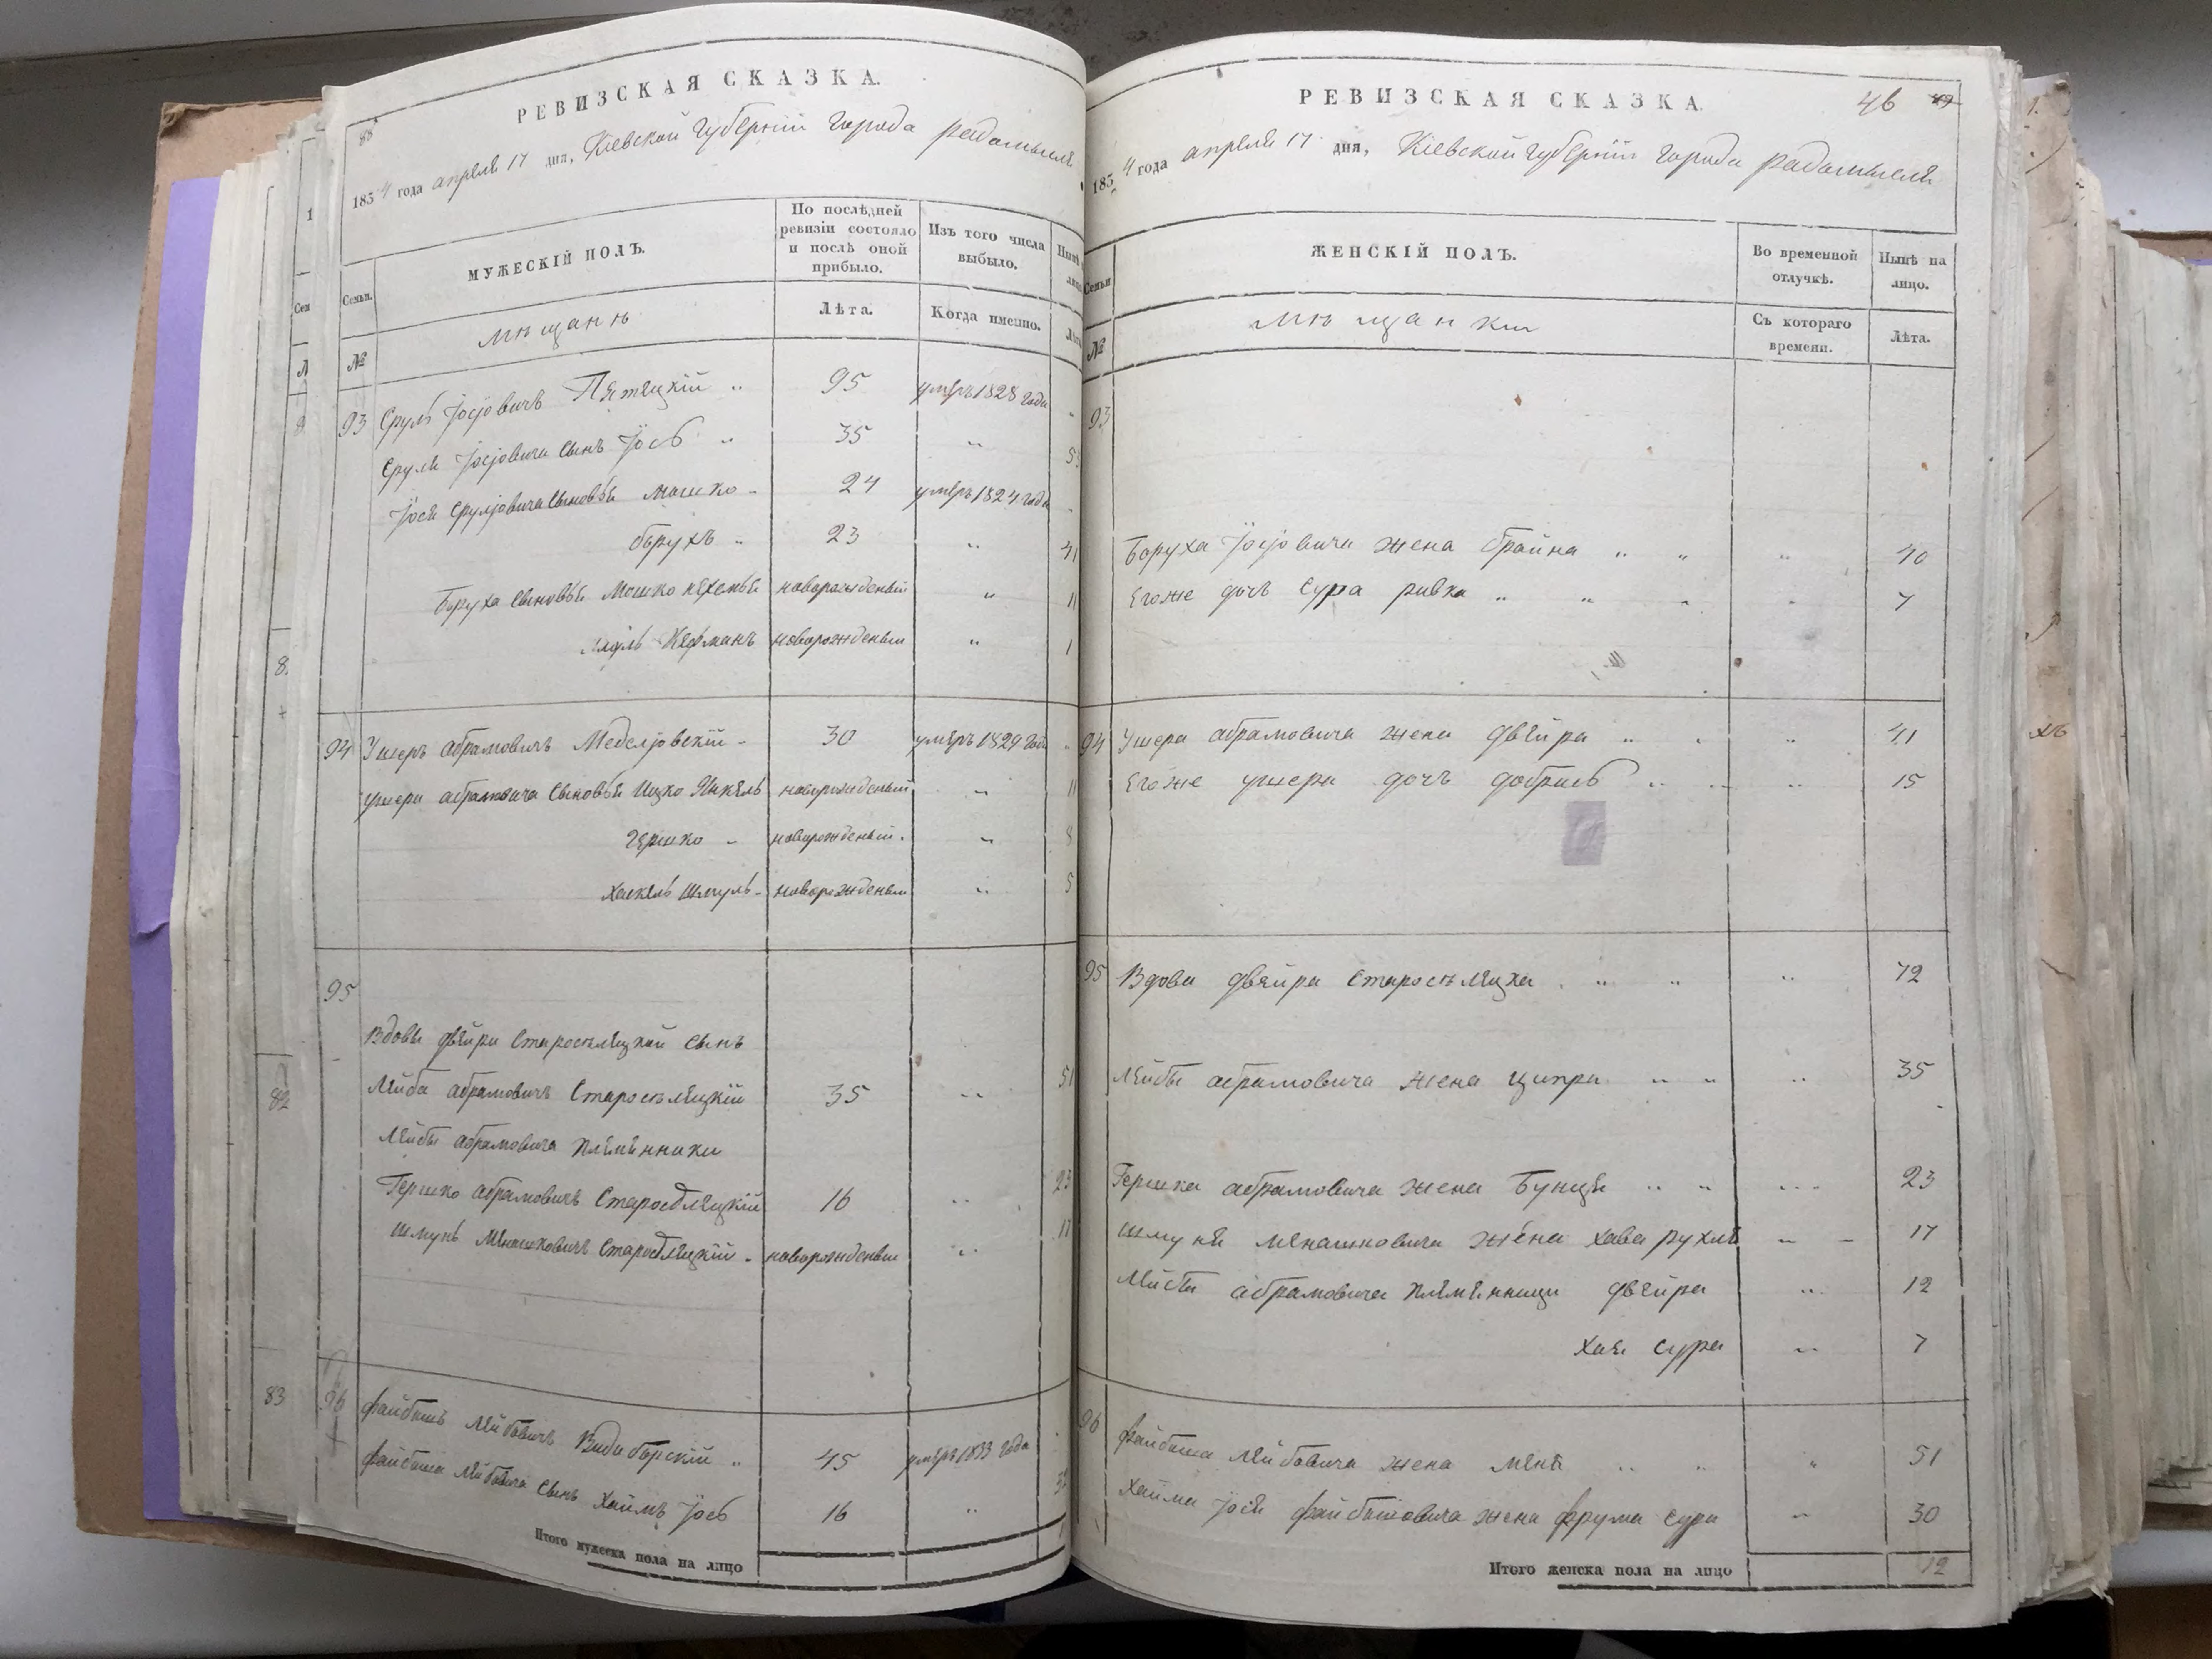 88
РЕВИЗСКАЯ СКАЗКА.
1854 года апреля 17 дня, Кіевской губерніи города радомысля
Семьи.
МУЖЕСКІЙ ПОЛЪ.
По послѣдней ревизіи состояло и послѣ оной прибыло.
Изъ того числа выбыло.
№
мѣщанѣ
Лѣта.
Когда именно.
93 Сруль Іосіовичъ 95 умеръ 1828 года
Сруля Іосіовича сынъ Іось 35
Іося Срулювича сыновья Мошко 24 умеръ 1824 года
борухъ 23 41
Боруха сыновья Мошко новорожденый 11
новорожденый 1
94 Ушеръ абрамовичъ 30 умеръ 1829 года
ушера абрамовича сыновья Ицко Янкель новорожденый 11
гершко новорожденый 8
Хаскель Шмуль новорожденый 5
95
Вдовы двейры Старосѣлецкой сынъ
Лейба абрамовичъ Старосѣлецкій 35 51
Лейбы абрамовича племенники
Гершко абрамовичъ Старосѣлецкій 16 23
Шмунь Менашковичъ Старосѣлецкій новорожденый 17
96 файбишъ Лейбовичъ 45 умеръ 1833 года
файбиша Лейбовича сынъ Хаимъ Іось 16
Итого мужеска пола на лицо
РЕВИЗСКАЯ СКАЗКА.
46
1854 года апреля 17 дня, Кіевской губерніи города радомысля
Семьи
ЖЕНСКІЙ ПОЛЪ.
Во временной отлучкѣ.
Нынѣ на лицо.
№
мѣщанки
Съ котораго времени.
Лѣта.
93
Боруха Іосіовича жена брайна 40
Егоже дочь Сура ривка 7
94 Ушера абрамовича жена двейра 41
Егоже ушера дочь добрись 15
95 Вдова двейра Старосѣлецка 72
Лейбы абрамовича жена ципра 35
Гершка абрамовича жена Бунця 23
шмуня менашковича жена хава рухля 17
Лейбы абрамовича племенницы двейра 12
хая сура 7
96 файбиша Лейбовича жена меня 51
Хаима Іося файбишовича жена фрума сура 30
Итого женска пола на лицо 12
82
83